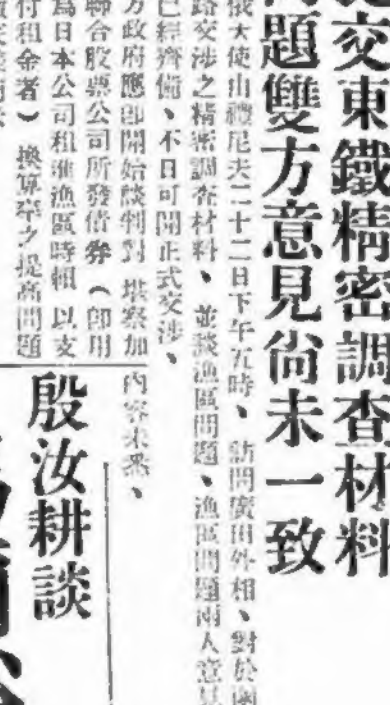 交東鐵精密調查材料
問題雙方意見尙未一致
俄大使由禮尼夫二十二日下午五時、訪問廣田外相、對於
路交涉之精密調查材料、並談漁區問題、漁區問題兩人意見
已經齊備、不日可開正式交涉、
方政府應卽開始談判對 堪察加
聯合股票公司所發債券（卽用
爲日本公司租漁區時輒 以支
付租金者） 換算率之提高問題
內容未悉、
殷汝耕談